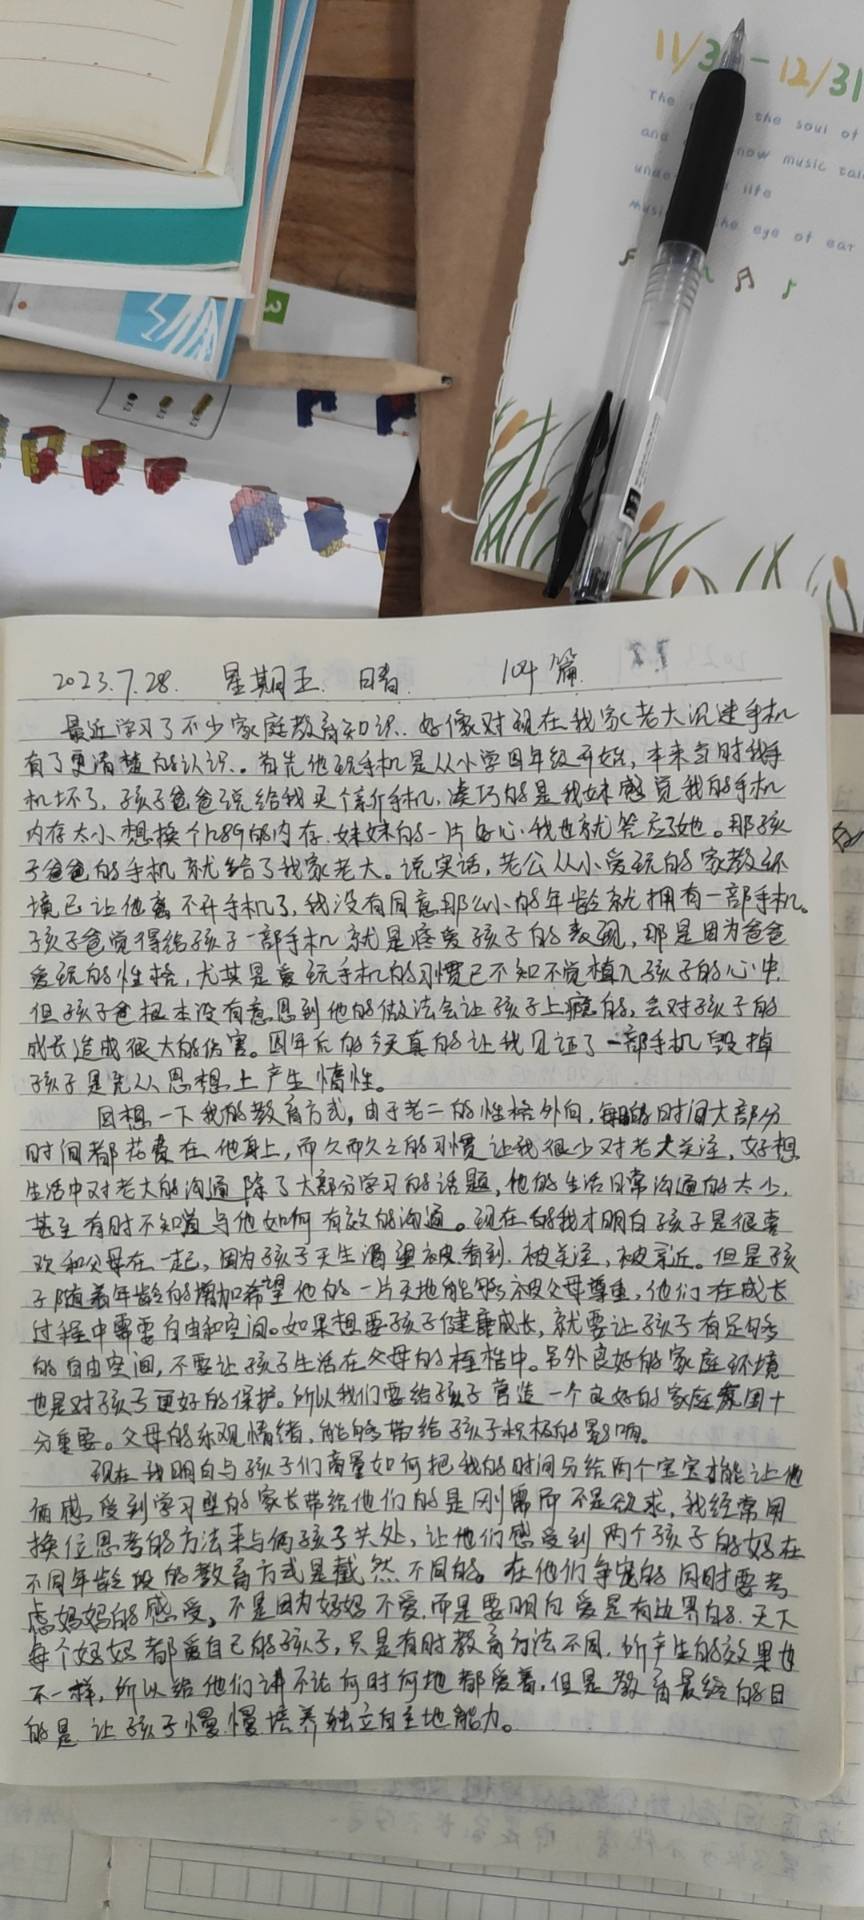 11/3 - 12/31
the soul of
and now music
life
music the eye of ear
3
2023.7.28. 星期五. 晴. 104篇
最近学习了不少家庭教育知识. 好像对现在我家老大沉迷手机
有了更清楚的认识. 首先他玩手机是从小学四年级开始, 本来当时我手
机坏了, 孩子爸爸说给我买个新手机, 凑巧的是我妹感觉我的手机
内存太小想换个128G的内存. 妹妹的一片好心. 我也就答应她。那孩
子爸爸的手机就给了我家老大。说实话, 老公从小爱玩的家教环
境已让他离不开手机了, 我没有同意那么小的年龄就拥有一部手机。
孩子爸觉得给孩子一部手机就是疼爱孩子的表现, 那是因为爸爸
爱玩的性格, 尤其是爱玩手机的习惯已不知不觉植入孩子的心中.
但孩子爸根本没有意思到他的做法会让孩子上瘾的, 会对孩子的
成长造成很大的伤害。四年后的今天真的让我见证了一部手机毁掉
孩子是先从思想上产生惰性。
回想一下我的教育方式, 由于老二的性格外向, 每日的时间大部分
时间都花费在他身上, 而久而久之的习惯让我很少对老大关注, 好想
生活中对老大的沟通除了大部分学习的话题, 他的生活日常沟通的太少,
甚至有时不知道与他如何有效的沟通。现在的我才明白孩子是很喜
欢和父母在一起, 因为孩子天生渴望被看到. 被关注, 被亲近。但是孩
子随着年龄的增加希望他的一片天地能够被父母尊重, 他们在成长
过程中需要自由和空间。如果想要孩子健康成长, 就要让孩子有足够
的自由空间, 不要让孩子生活在父母的桎梏中。另外良好的家庭环境
也是对孩子更好的保护。所以我们要给孩子营造一个良好的家庭氛围十
分重要。父母的乐观情绪, 能够带给孩子积极的影响。
现在我明白与孩子们商量如何把我的时间分给两个宝宝才能让他
俩感受到学习型的家长带给他们的是刚需而不是欲求, 我经常用
换位思考的方法来与俩孩子共处, 让他们感受到两个孩子的妈在
不同年龄段的教育方式是截然不同的。在他们争宠的同时要考
虑妈妈的感受, 不是因为妈妈不爱. 而是要明白爱是有边界的. 天下
每个妈妈都爱自己的孩子, 只是有时教育方法不同, 所产生的效果也
不一样, 所以给他们讲不论何时何地都爱着, 但是教育最终的目
的是让孩子慢慢培养独立自主地能力。